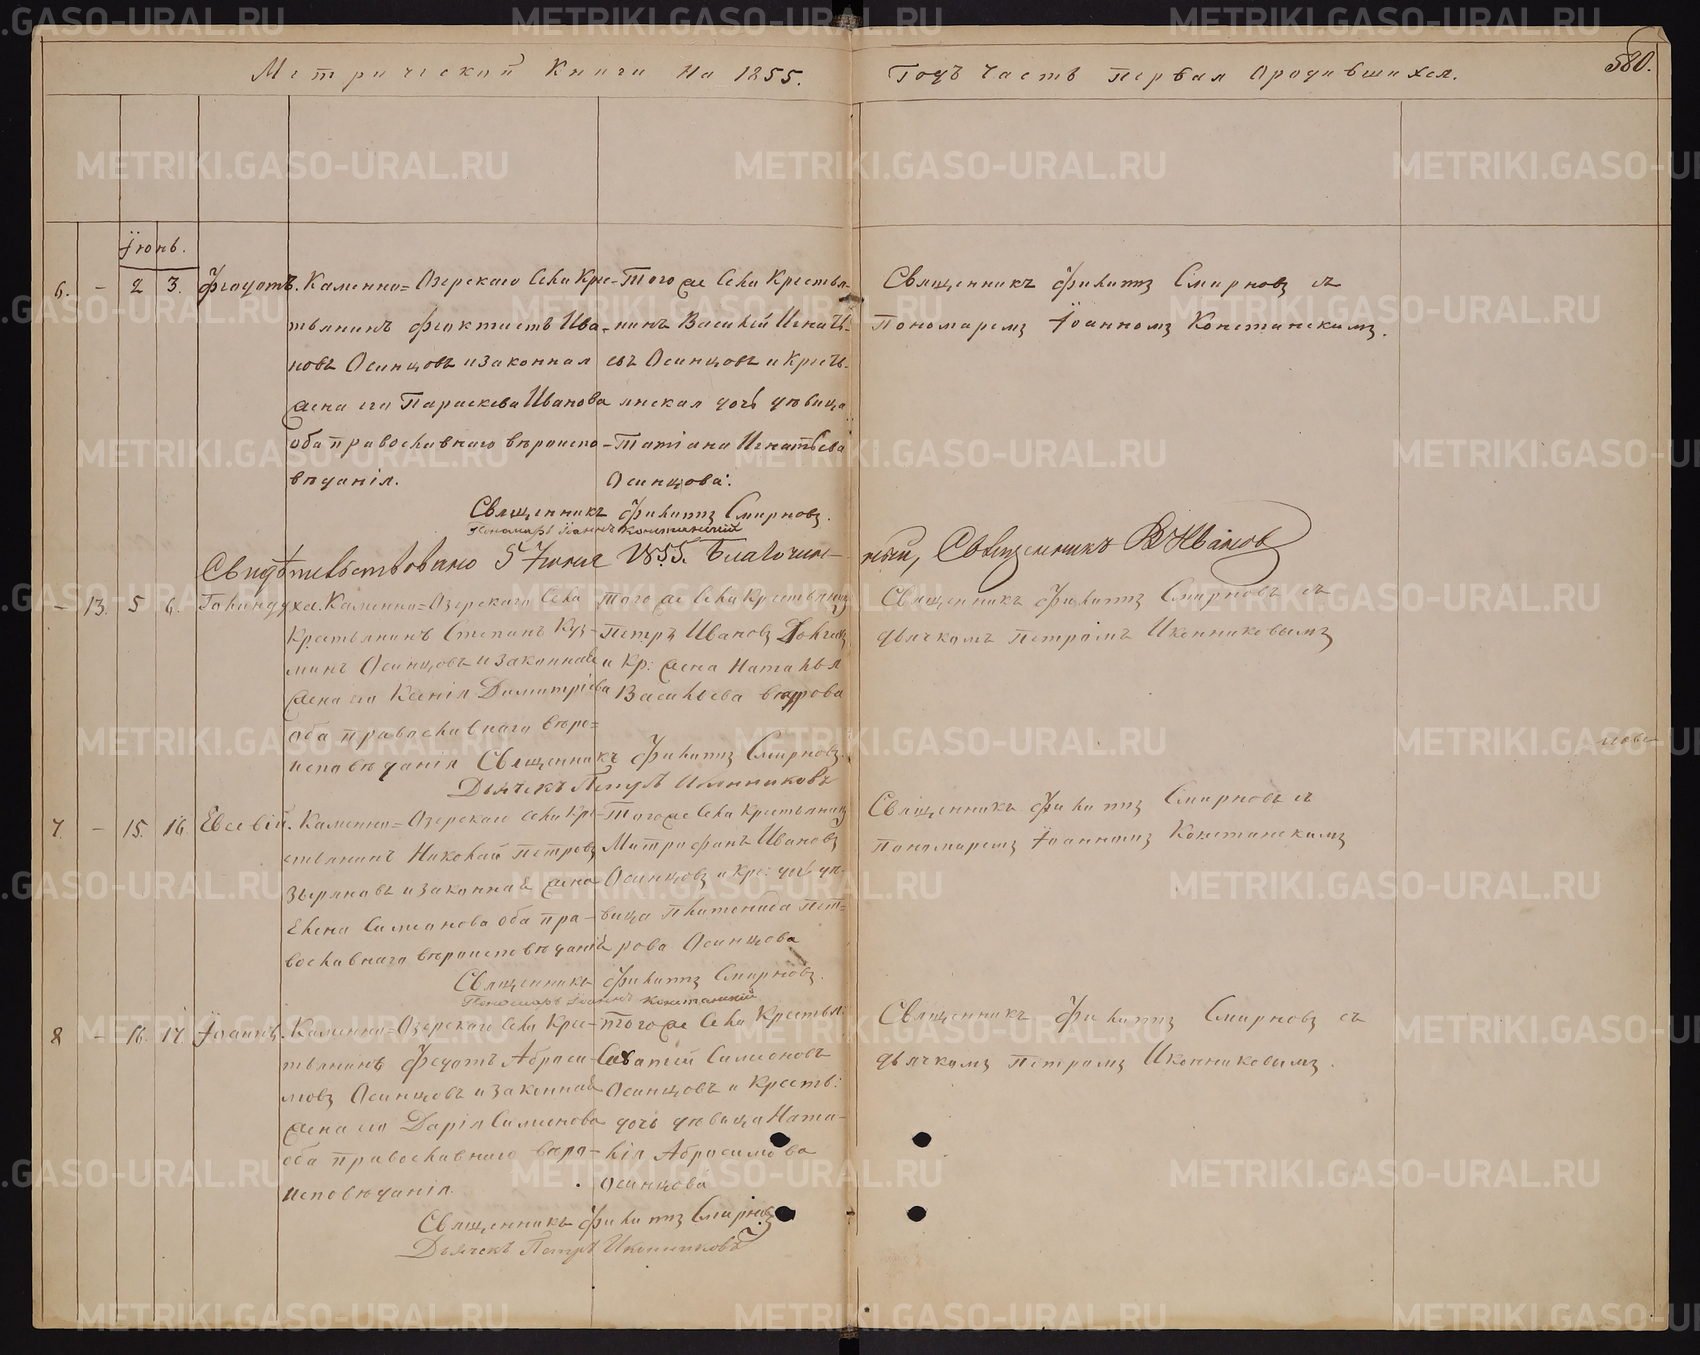 Метрической Книги На 1855. Годъ Часть Первая Ородившихся. 580.
Іюнь.
6. - 2 3. Феодотъ. Каменно=Озерскаго Села Кре-
стьянинъ Феоктистъ Ива-
новъ Осинцовъ и законная
жена его Параскева Иванова
оба православнаго вѣроиспо-
вѣданія.
Того же Села Крестья-
нинъ Василій Игнать-
евъ Осинцовъ и Кресть-
янская дочь дѣвица
Татіана Игнатьева
Осинцова.
Священникъ Филиппъ Смирновъ съ
Пономаремъ Іоанномъ Констанскимъ.
Священникъ Филиппъ Смирновъ.
Пономарь Іоаннъ Констанскій
Свидѣтельствовано 5 Іюня 1855. Благочин-
ный, Священникъ В Ивановъ
- 13. 5 6. Голиндуха. Каменно=Озерскаго Села
Крестьянинъ Степанъ Куз-
минъ Осинцовъ и законная
жена его Ксенія Димитріева
оба православнаго вѣро=
исповѣданія
Того же Села Крестьянинъ
Петръ Ивановъ
и Кр: жена Наталья
Васильева
Священникъ Филиппъ Смирновъ съ
дьячкомъ Петромъ Иконниковымъ
Священникъ Филиппъ Смирновъ.
Дьячекъ Петръ Иконниковъ
7. - 15. 16. Евсевій. Каменно=Озерскаго Села Кре-
стьянинъ Николай Петровъ
Зыряновъ и законная жена
Елена Симеонова оба пра-
вославнаго вѣроисповѣданія
Того же Села Крестьянинъ
Митрофанъ Ивановъ
Осинцовъ и Кре: дочь дѣ-
вица Платонида Пет=
рова Осинцова
Священникъ Филиппъ Смирновъ съ
Пономаремъ Іоанномъ Констанскимъ
Священникъ Филиппъ Смирновъ.
Пономарь Іоаннъ Констанскій
8 - 16. 17. Іоаннъ. Каменно=Озерскаго Села Кре-
стьянинъ Федотъ Абраси-
мовъ Осинцовъ и законная
жена его Дарія Симеонова
оба православнаго вѣро-
исповѣданія.
Того же Села Крестья:
Саватій Симеоновъ
Осинцовъ и Кресть:
дочь дѣвица Ната-
лія Абросимова
Осинцова
Священникъ Филиппъ Смирновъ съ
дьячкомъ Петромъ Иконниковымъ.
Священникъ Филиппъ Смирновъ
Дьячекъ Петръ Иконниковъ
METRIKI.GASO-URAL.RU